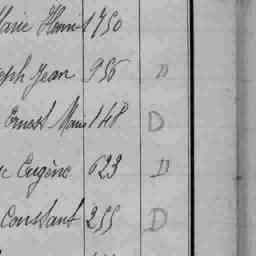 Marie Henri 1750
Joseph Jean 956 D
Ernest Marie 148 D
Eugène 623 D
Constant 255 D